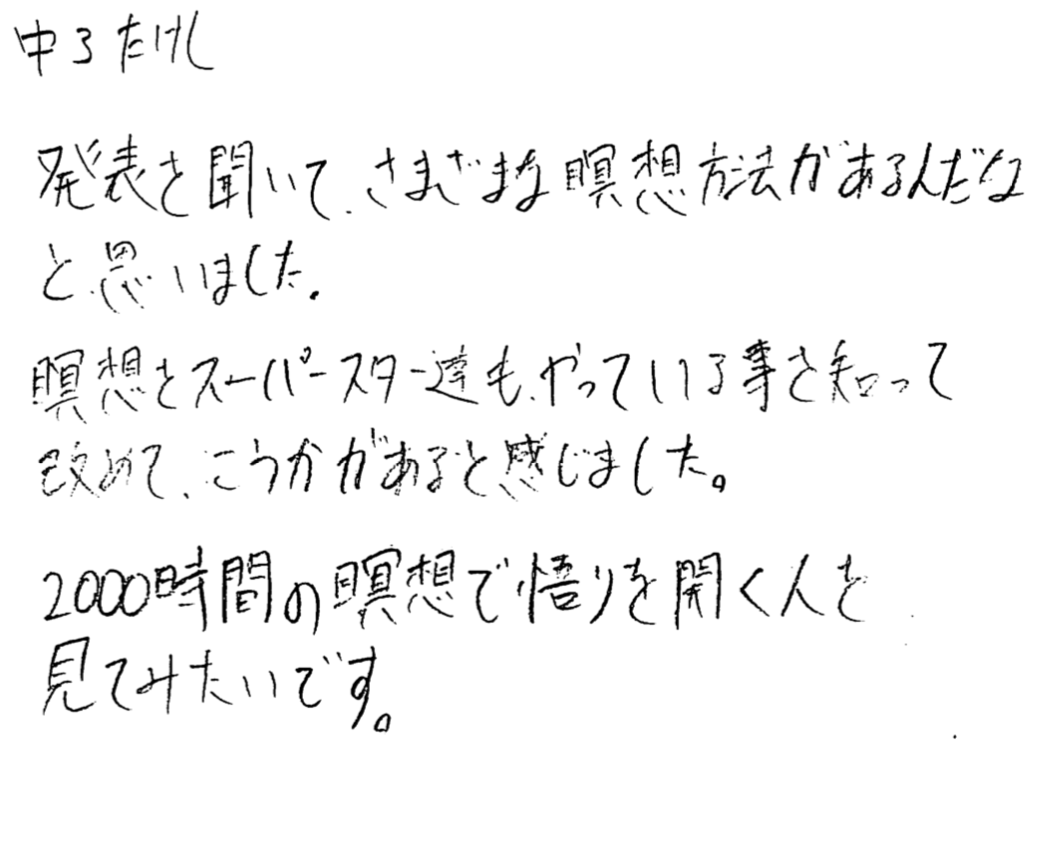 中3 たけし
発表を聞いて、さまざまな瞑想方法があるんだな
と思いました.
瞑想をスーパースター達も、やっている事を知って
改めて、こうかがあると感じました。
2000時間の瞑想で悟りを開く人を
見てみたいです。